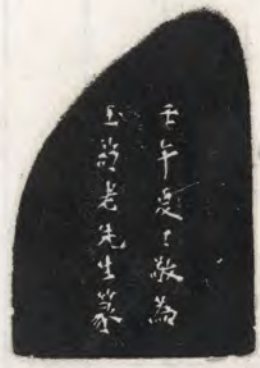 壬午夏敬為
玉老先生篆